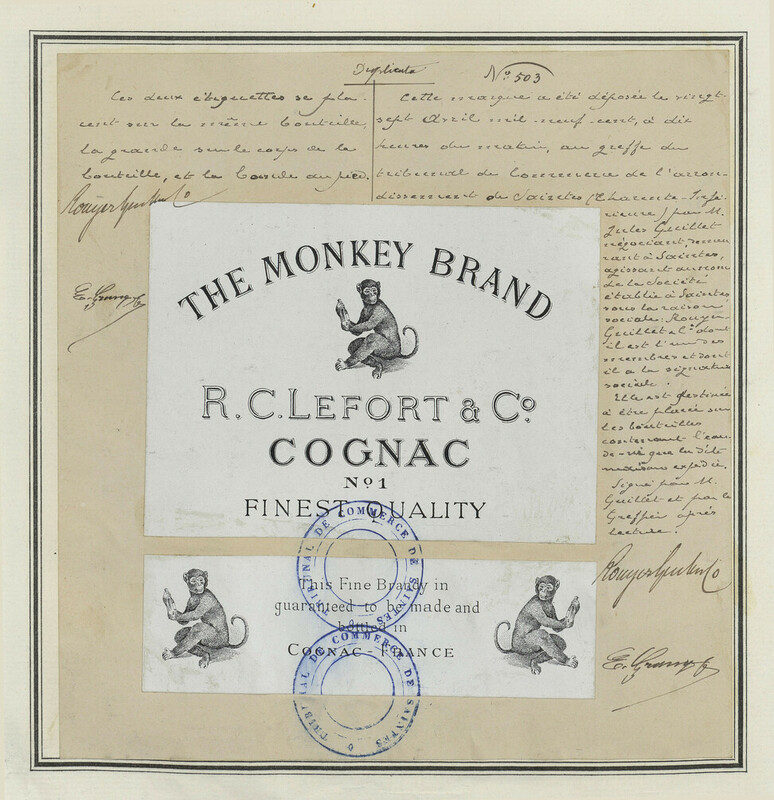 Duplicata
No 503
Les deux étiquettes se pla-
cent sur la même bouteille,
la grande sur le corps de la
bouteille, et la bande au pied.
Cette marque a été déposée le vingt-
sept Avril mil neuf cent, à dix
heures du matin, au greffe du
tribunal de Commerce de l'arron-
dissement de Saintes (Charente-Infé-
rieure) par M.
Jules Guillet
négociant, demeu-
rant à Saintes,
agissant au nom
de la Société
établie à Saintes
sous la raison
sociale: Rouyer
Guillet & Cie dont
il est l'un des
membres et dont
il a la signature
sociale.
Elle est destinée
à être placée sur
les bouteilles
contenant l'eau
de-vie que la dite
maison expédie.
Signé par M.
Guillet et par le
Greffier après
lecture.
Rouyer Guillet & Co
THE MONKEY BRAND
R. C. LEFORT & Co.
COGNAC
No. 1
FINEST QUALITY
TRIBUNAL DE COMMERCE DE SAINTES
This Fine Brandy in
guaranteed to be made and
bottled in
COGNAC-FRANCE
TRIBUNAL DE COMMERCE DE SAINTES
Rouyer Guillet & Co